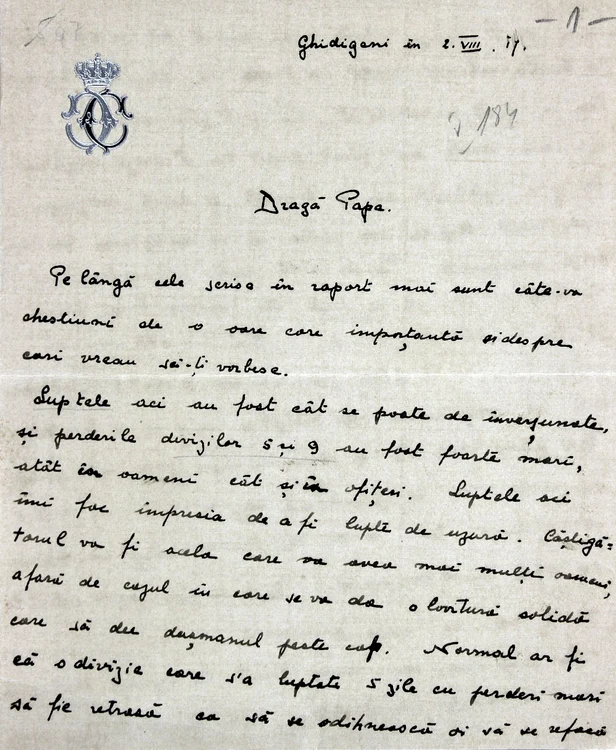 - 1 -
Ghidigeni în 2. VIII. 17.
184
Dragă Papa.
Pe lângă cele scrise în raport mai sunt câte-va
chestiuni de o oare care importanță și despre
cari vreau să-ți vorbesc.
Luptele aci au fost cât se poate de înverșunate,
și perderile divizilor 5 și 9 au fost foarte mari,
atât în oameni cât și în ofițeri. Luptele aci
îmi fac impresia de a fi lupte de uzură. Câștigă=
torul va fi acela care va avea mai mulți oameni,
afară de cazul în care se va da o lovitură solidă
care să dee dușmanul peste cap. Normal ar fi
că o divizie care s'a luptat 5 zile cu perderi mari
să fie retrasă ca să se odihnească și să se refacă